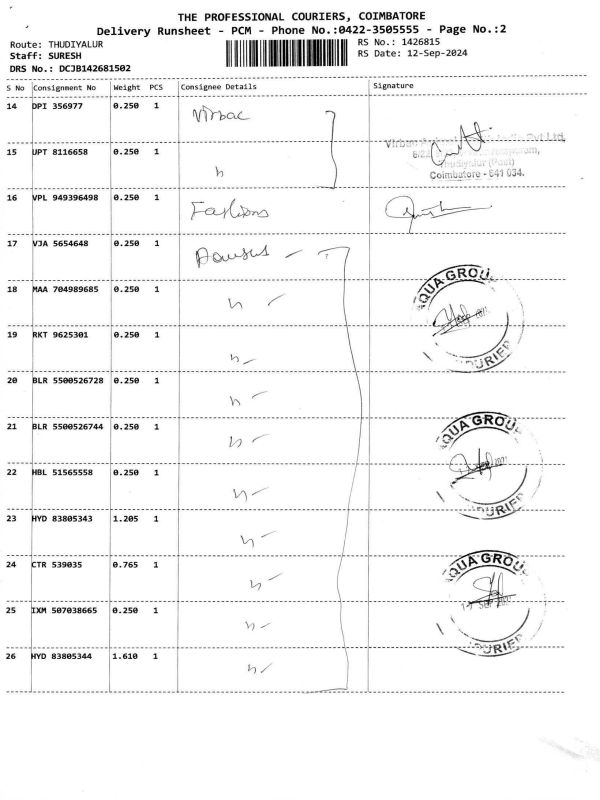 THE PROFESSIONAL COURIERS, COIMBATORE
Delivery Runsheet - PCM - Phone No.:0422-3505555 - Page No.:2
Route: THUDIYALUR
Staff: SURESH
DRS No.: DCJB142681502
RS No.: 1426815
RS Date: 12-Sep-2024
S No Consignment No Weight PCS Consignee Details Signature
14 DPI 356977 0.250 1 Virbac
15 UPT 8116658 0.250 1
Thudiyalur (Post)
Coimbatore - 641 034.
16 VPL 949396498 0.250 1
17 VJA 5654648 0.250 1
18 MAA 704989685 0.250 1
AQUA GROUP
19 RKT 9625301 0.250 1
20 BLR 5500526728 0.250 1
21 BLR 5500526744 0.250 1
AQUA GROUP
22 HBL 51565558 0.250 1
23 HYD 83805343 1.205 1
24 CTR 539035 0.765 1
AQUA GROUP
25 IXM 507038665 0.250 1
26 HYD 83805344 1.610 1